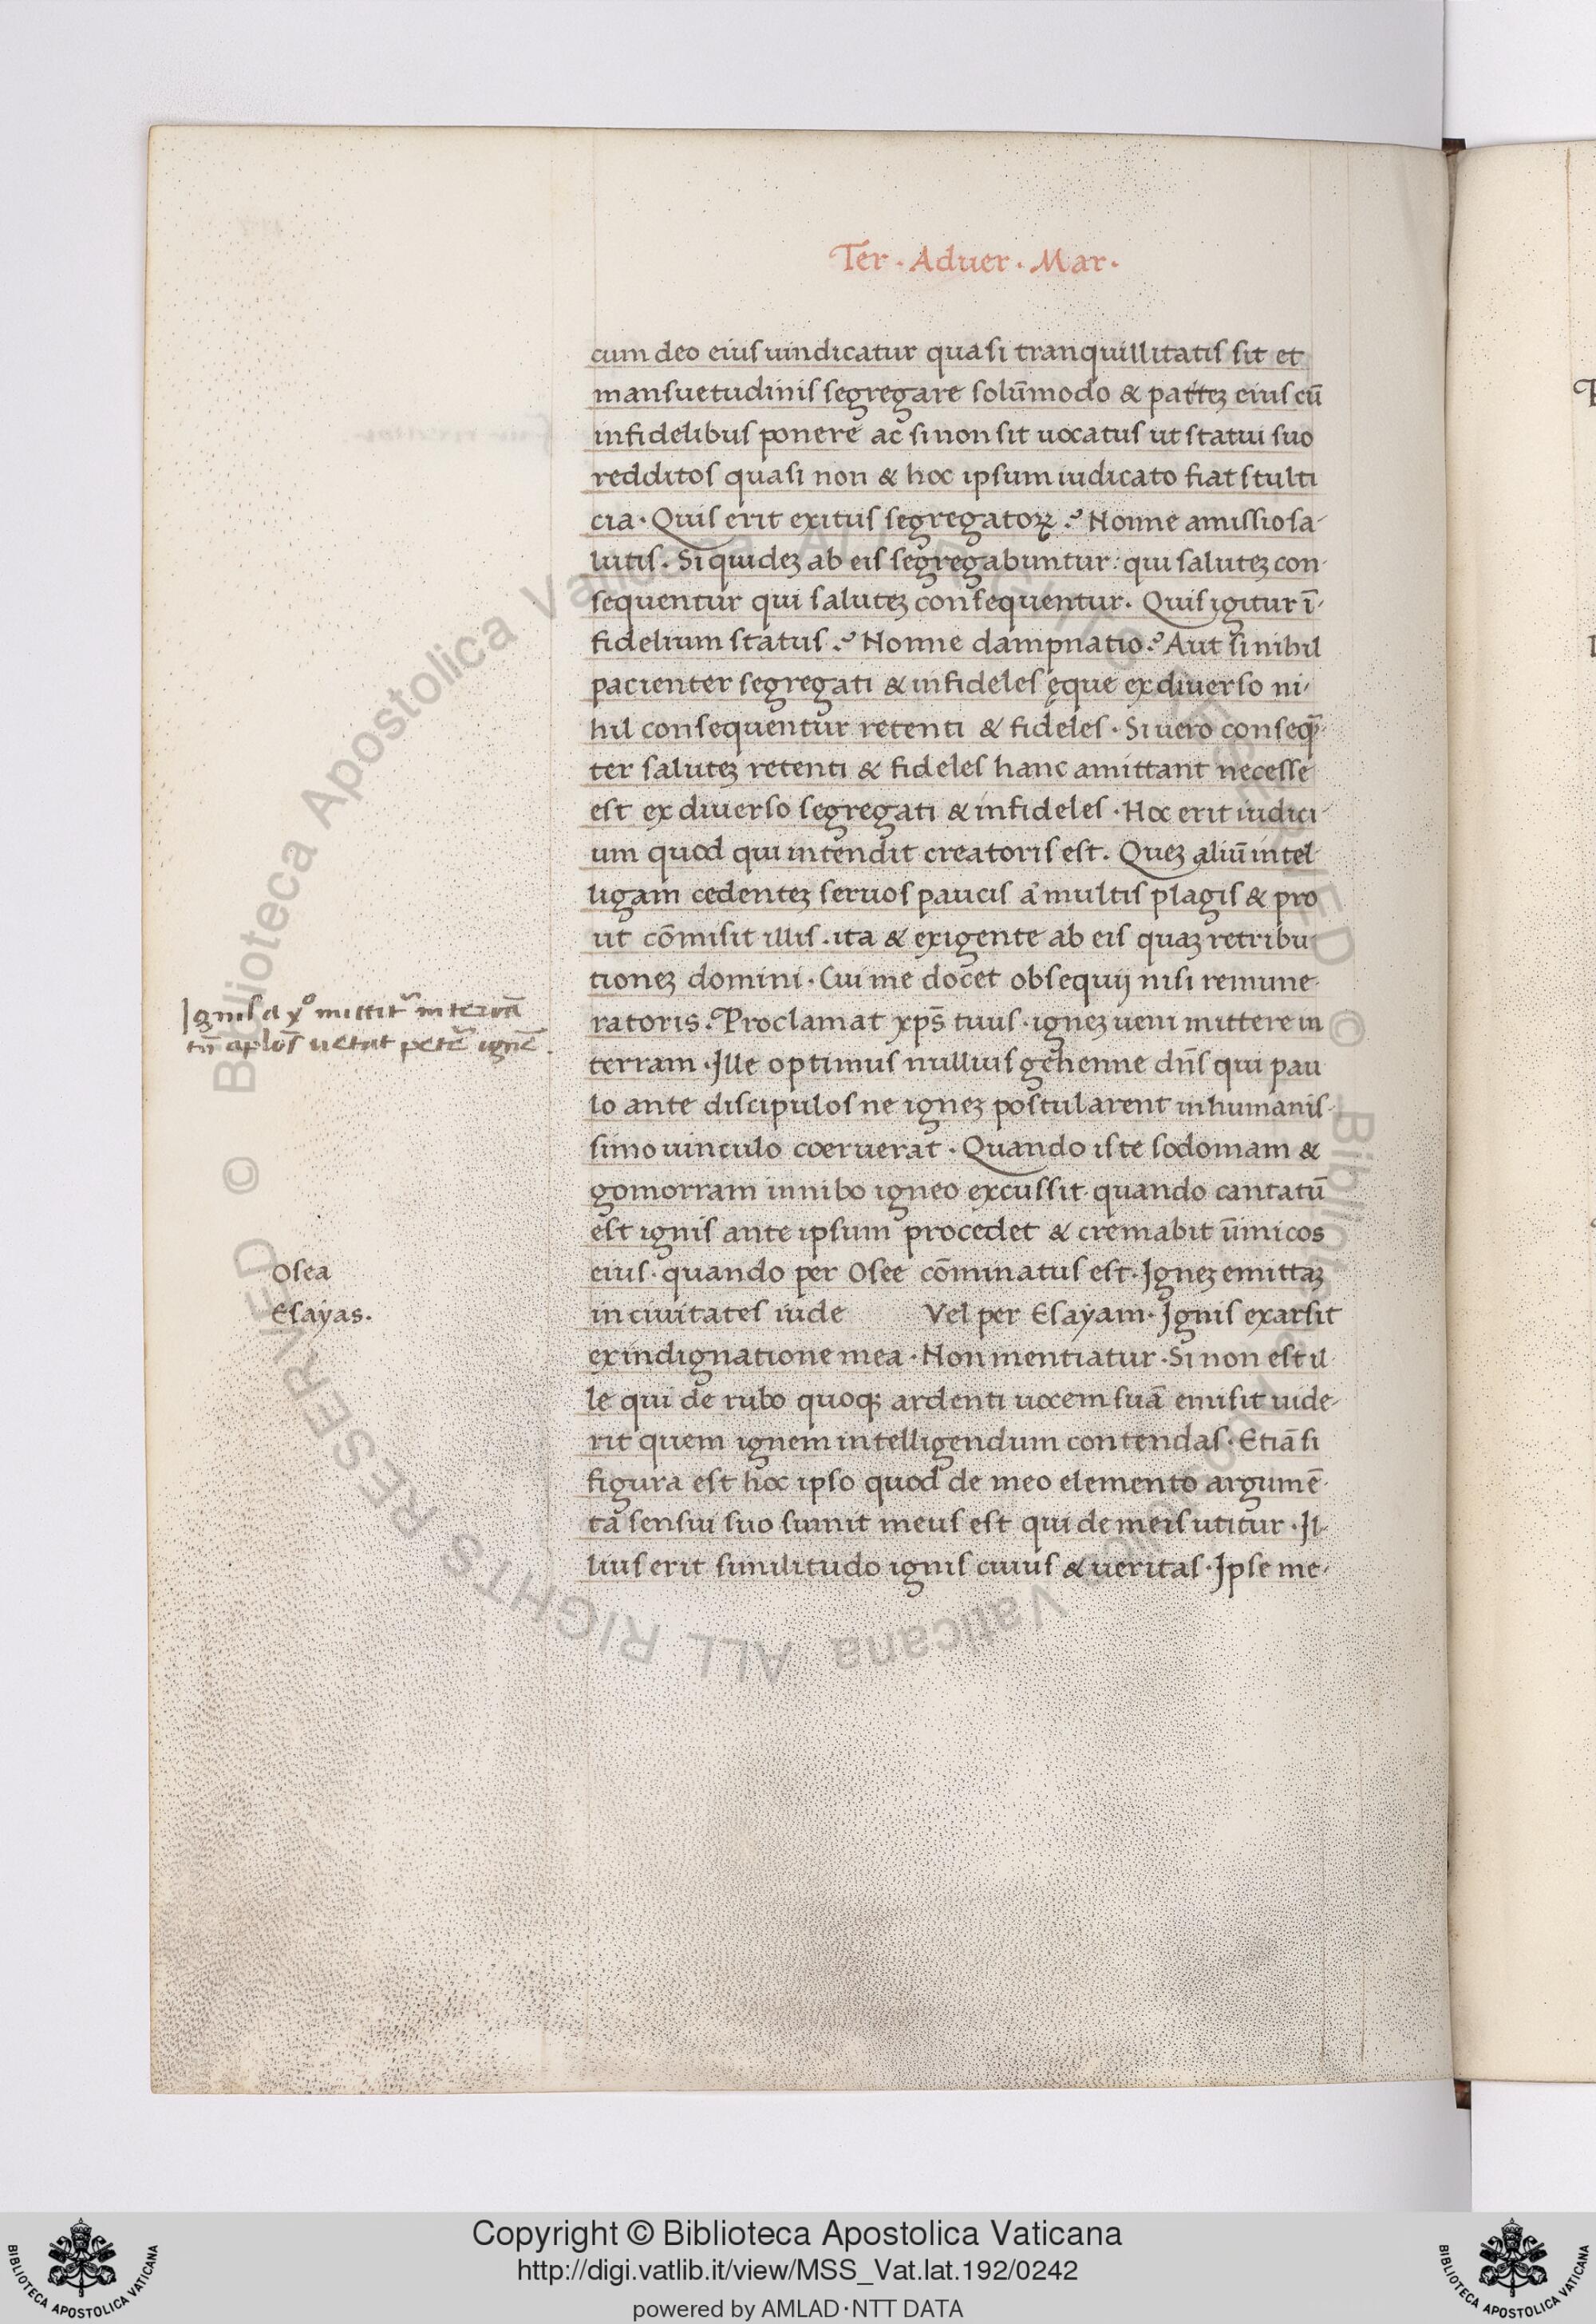 Ter · Aduer · Mar ·
cum deo eius uindicatur quasi tranquillitatis sit et
mansuetudinis segregare solūmodo & pattēz eius cū
infidelibus ponere ac si non sit uocatus ut statui suo
redditos quasi non & hoc ipsum iudicato fiat stulti
cia · Quis erit exitus segregatoꝝ ? Nonne amissio sa-
lutis . Siquidez ab eis segregabuntur : qui salutez con-
sequentur qui salutez consequentur . Quis igitur ī-
fidelium status ? Nonne dampnatio ? Aut si nihil
pacienter segregati & infideles ęque ex diuerso ni-
hil consequentur retenti & fideles · Si uero conseq̄-
ter salutez retenti & fideles hanc amittant necesse
est ex diuerso segregati & infideles · Hoc erit iudici-
um quod qui intendit creatoris est . Quez aliū intel-
ligam cedentez seruos paucis a' multis plagis & pro
ut cōmisit illis . ita & exigente ab eis quaz retribu
tionez domini · Cui me docet obsequij nisi remune-
ratoris . Proclamat xp̄s tuus · ignez ueni mittere in
terram · Ille optimus nullius gehenne dn̄s qui pau
lo ante discipulos ne ignez postularent inhumanis-
simo uinculo coeruerat · Quando iste sodomam &
gomorram innibo igneo excussit · quando cantatū
est ignis ante ipsum procedet & cremabit ūmicos
eius · quando per Osee cōminatus est · Ignez emittaz
in ciuitates iude Vel per Esayam · Ignis exarsit
ex indignatione mea · Non mentiatur · Si non est il-
le qui de rubo quoqꝫ ardenti uocem suā emisit uide-
rit quem ignem intelligendum contendas · Etiā si
figura est hoc ipso quod de meo elemento argumē-
ta sensui suo sumit meus est qui de meis utitur · Il-
lius erit similitudo ignis cuius & ueritas · Ipse me-
Ignis a xº mittit' in terrā
tn̄ aplōs uetat petē ignē .
Osea
Esayas .
Copyright © Biblioteca Apostolica Vaticana
http://digi.vatlib.it/view/MSS_Vat.lat.192/0242
powered by AMLAD·NTT DATA
BIBLIOTECA APOSTOLICA VATICANA
BIBLIOTECA APOSTOLICA VATICANA
© Biblioteca Apostolica Vaticana ALL RIGHTS RESERVED © Biblioteca Apostolica Vaticana ALL RIGHTS RESERVED